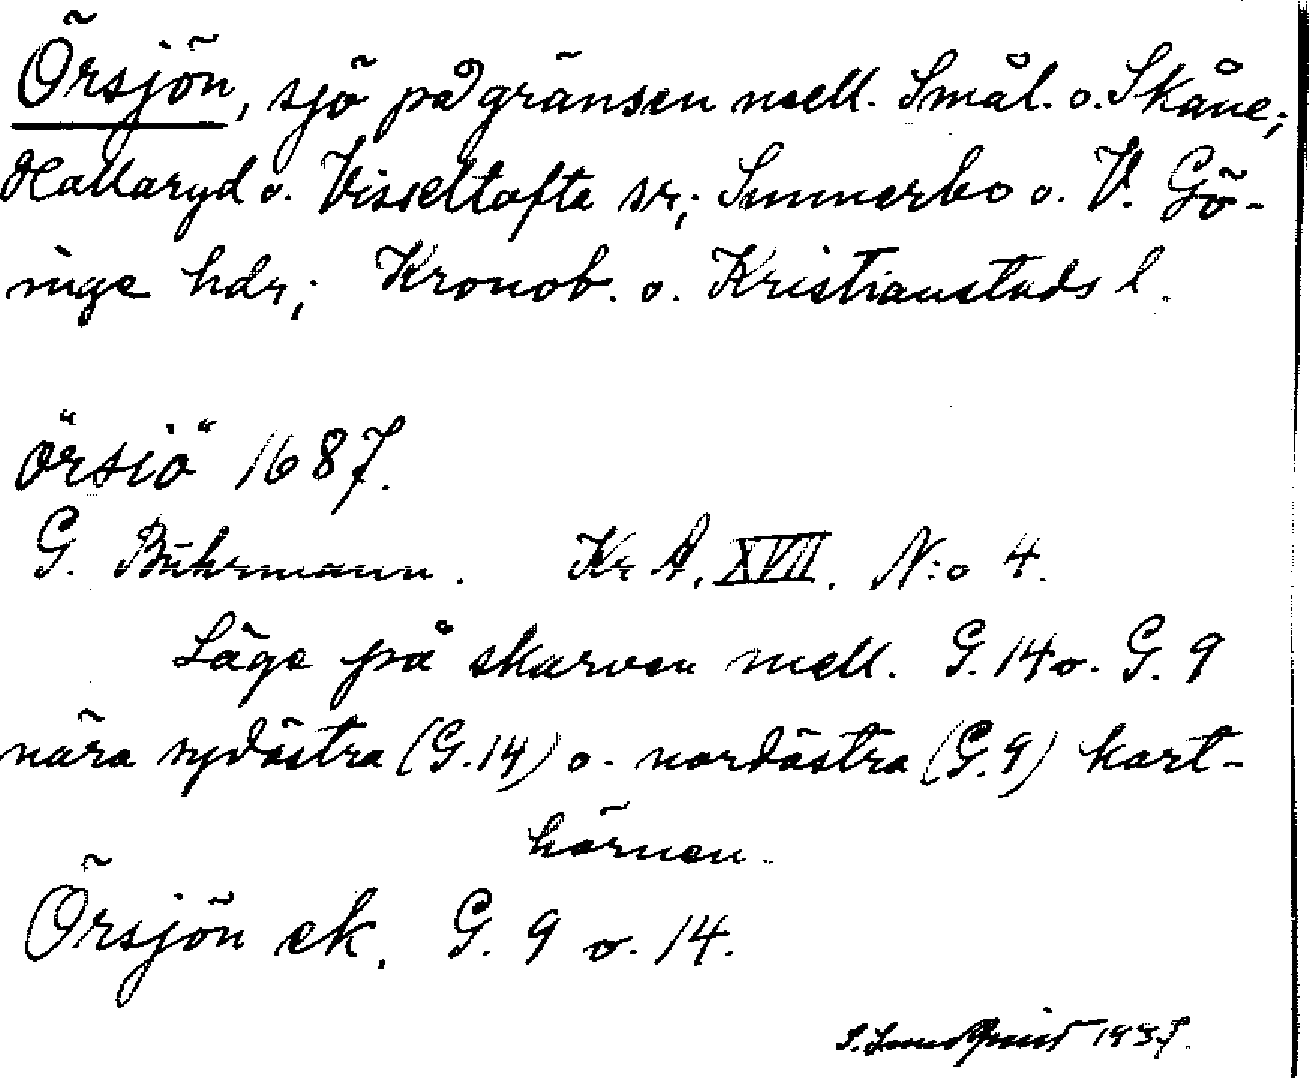 Örsjön, sjö på gränsen mell. Smål. o. Skåne;
Hallaryd o. Visseltofta snr; Sunnerbo o. V. Gö-
inge hdr; Kronob. o. Kristianstads l.
örsiö 1687.
G. Buhrmann. Kr A. XVII. N:o 4.
Läge på skarven mell. G. 14 o. G. 9
nära sydöstra (G. 14) o. nordöstra (G. 9) kart-
hörnen.
Örsjön ek. G. 9 o. 14.